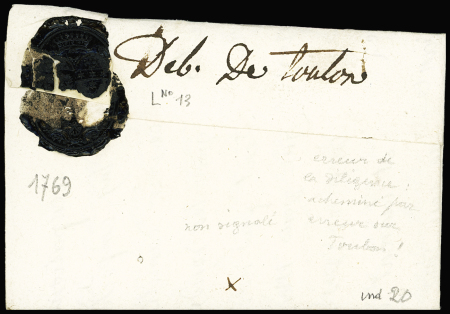 Deb. De Toulon
L No 13
1769
erreur de
la diligence :
acheminé par
non signalé erreur sur
Toulon !
x
ind 20